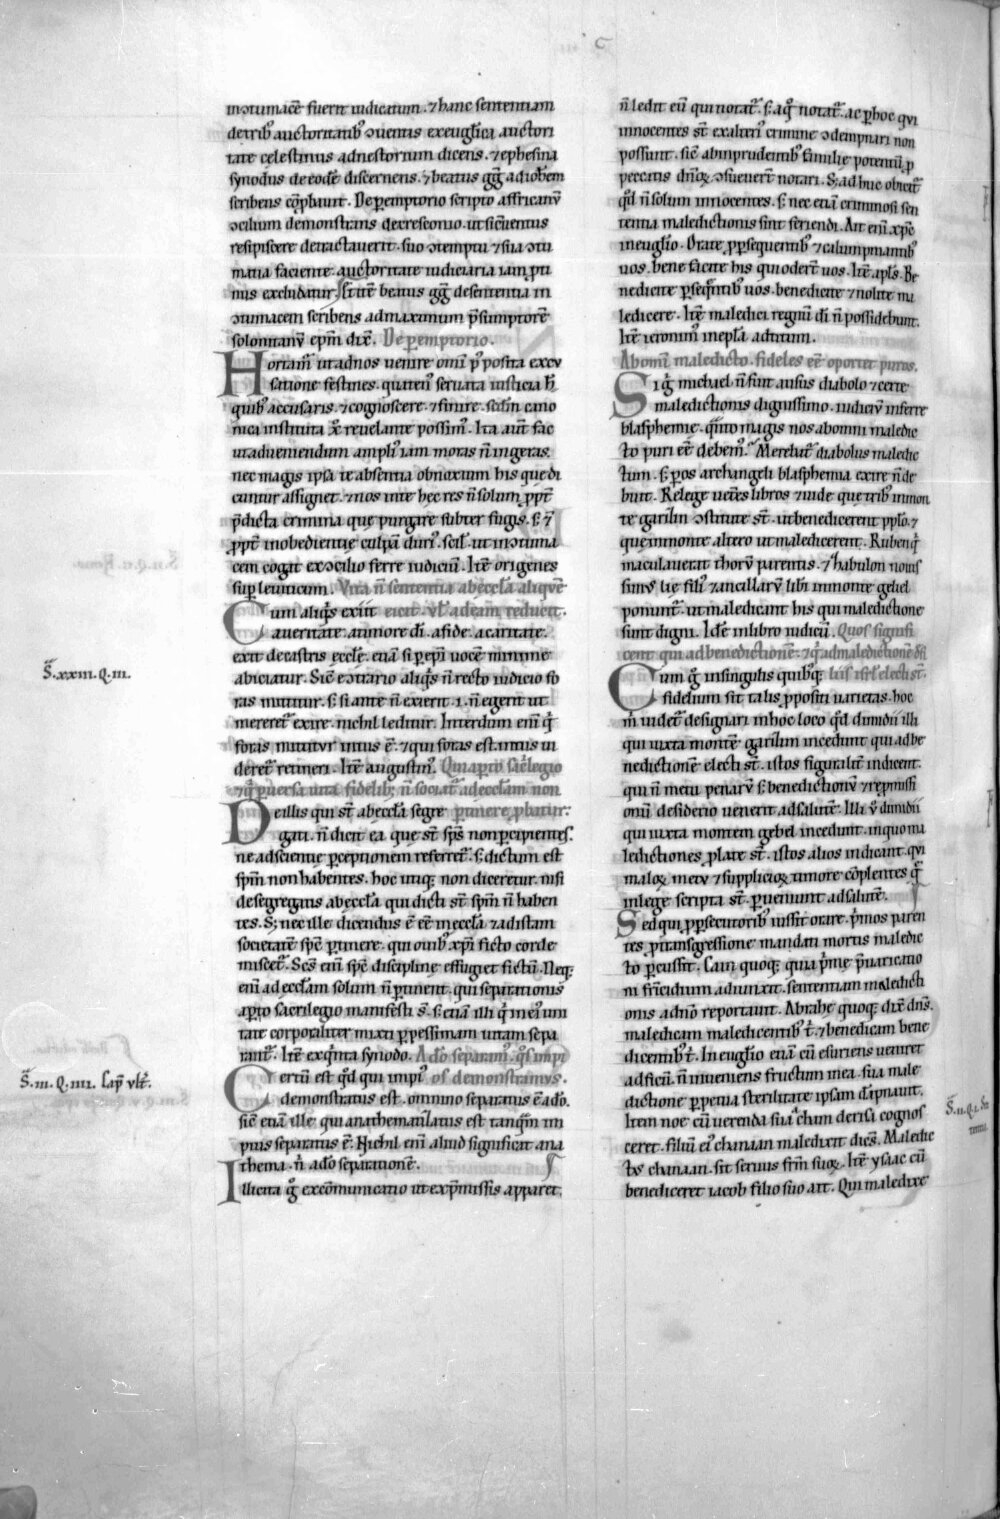 ɔtumacē fuerit iudicatum. ⁊ hanc sententiam
de trib' auctoritatib' ɔuentus ex euglica auctori
tate celestinus ad nestorium dicens. ⁊ ephesina
synodus de eodē discernens. ⁊ beatus gg̃ ad ioħem
scribens cōpbauit. De peremptorio scripto affricanū
ɔcilium demonstrans de cresconio. ut si cuentus
resipiscere detractauerit. suo ɔtemptu ⁊ sua ɔtu
matia faciente. auctoritate iudiciaria iam pti
nus excludatur. Sꝫ itē beatus gg̃ de sententia in
ɔtumacem scribens ad maximum p̄sumptorē
solonitanū ep̄m dix̄. De peremptorio.
Hortam̄ ut ad nos uenire omi p̄ posita excu
satione festines. quaten' seruata iusticia h̄
quib' accusaris. ⁊ cognoscere. ⁊ finire. scdm cano
nica instituta xp̄o reuelante possim'. Ita aut̄ fac
ut ad ueniendum ampli' iam moras n̄ ingeras.
nec magis ipsa te absentia obnoxium his que di
cuntur assignet. ⁊ nos in te hec res n̄ solum ꝓpt̄
p̄dicta crimina que purgare subter fugis. sꝫ ⁊
ꝓpt̄ inobedientię culpā duri'. scil' ut in ɔtuma
cem cogat ex ɔcilio ferre iudiciū. Itē origenes
sup leuiticum. Vita n̄ sententia ab eccl̄a aliquē
Cum aliq̇s exiit eicit. vl' ad eam reducit.
a ueritate. a timore di. a fide. a caritate.
exit de castris eccl̄ę. etiā si p ep̄i uocē minime
abiciatur. Sic̄ e ɔtrario aliq̇s n̄ recto iudicio fo
ras mittitur. sꝫ si ante n̄ exierit. i. n̄ egerit ut
mereret̄ exire. nichil leditur. Interdum eni q̇
foras mittitur intus ē. ⁊ qui foras est. intus ui
deret̄ retineri. Itē augustin'. Qui apto sac̄legio
⁊ q̇ puersa uita fidelib; n̄ sociat̄ ad eccl̄am non
De illis qui st̄ ab eccl̄a segre ptinere pbatur.
gati. n̄ dicit ea que st̄ sp̄s non pcipientes.
ne ad scientię pceptionem referret̄. sꝫ dictum est
sp̄m non habentes. hoc utiq; non diceretur. nisi
de segregatis ab eccl̄a qui dicti st̄ sp̄m n̄ haben
tes. Sꝫ nec ille dicendus ē eē in eccl̄a ⁊ ad istam
societatē sp̄c ptinere. qui ouib' xp̄i ficto corde
miscet̄. Sc̄s eni sp̄c disciplinę effugiet fictū. Neq;
eni ad eccl̄am solum n̄ ptinent. qui separationis
apto sacrilegio manifesti s̄. sꝫ etiā illi q̇ in ei' uni
tate corporaliter mixti p pessimam uitam sepa
rant̄. Itē ex q̇nta synodo. A do separam'. q̇s impi
Certū est qd qui impi' os demonstramus.
demonstratus est. omnino separatus ē a do.
sic̄ etiā ille. qui anathematizatus est tanq̄m im
pius separatus ē. Nichil eni aliud significat ana
thema. n̄ a do separationē.
Illicita g̊ excōmunicatio ut ex p̄missis apparet.
n̄ ledit eū qui notat̄. sꝫ a q̊ notat̄. ac p hoc qui
innocentes st̄ ex alteri' crimine ɔdempnari non
possunt. sic̄ ab inprudentib' familię potentiū p
peccatis dn̄oꝝ ɔsueuert̄ notari. Sꝫ ad huc obicit̄
qd n̄ solum innocentes. sꝫ nec etiā criminosi sen
tentia maledictionis sint feriendi. Ait eni xp̄c
in euglio. Orate p psequentib' ⁊ calumpniantib'
uos. bene facite his qui odert̄ uos. Itē apl's. Be
nedicite psequentib' uos. benedicite ⁊ nolite ma
ledicere. Itē maledici regnū di n̄ possidebunt.
Itē ieronim' in epl̄a ad titum.
Ab omi maledicto. fideles eē oportet puros.
Si g̊ michael n̄ fuit ausus diabolo ⁊ certe
maledictionis dignissimo. iudiciū inferre
blasphemię. q̄nto magis nos ab omni maledic
to puri eē debem'. Merebat̄ diabolus maledic
tum. sꝫ p os archangeli blasphemia exire n̄ de
buit. Relege uet̄es libros ⁊ uide que trib' in mon
te garizin ɔstitute st̄. ut benedicerent pplo. ⁊
que in monte altero ut maledicerent. Ruben q̇
maculauerat thorū parentis. ⁊ zabulon nouis
simus lię fili' ⁊ ancillarū liberi in monte gebel
ponunt̄. ut maledicant his qui maledictione
sunt digni. Idē in libro iudicū. Quos signifi
cent qui ad benedictionē. ⁊ q̇ ad maledictionē di
Cum g̊ in singulis quibq; uisi isrl' electi st̄.
fidelium sit talis ppositi uarietas. hoc
m̄ uidet̄ designari in hoc loco qd dimidii illi
qui iuxta montē garizim incedunt qui ad be
nedictionē electi st̄. istos figuralit̄ indicent.
qui n̄ metu penarū sꝫ benedictionū ⁊ repmissi
onū desiderio uenerit ad salutē. Illi ū dimidii
qui iuxta montem gebel incedunt. in quo ma
ledictiones plate st̄. istos alios indicant. qui
maloꝝ metu ⁊ supplicioꝝ timore cōplentes q̄
in lege scripta st̄. pueniunt ad salutē.
Sed qui p psecutorib' iussit orare. p̄mos paren
tes p transgressione mandati mortis maledic
to pcussit. Cain quoq; quia p̄mę p̄uaricatio
ni fr̄icidium adiunxit. sententiam maledicti
onis a dno reportauit. Abrahę quoq; dix̄ dn̄s.
maledicam maledicentib' t'. ⁊ benedicam bene
dicentib' t'. In euglio etiā cū esuriens ueniret
ad ficū. n̄ inueniens fructum in ea. sua male
dictione ppetua sterilitate ipsam dāpnauit.
Item noe cū uerenda sua cham derisi cognos
ceret. filiū ei' chanaan maledixit dicēs. Maledic
tus chanaan. sit seruus frm̄ suoꝝ. Itē ysaac cū
benediceret iacob filio suo ait. Qui maledixe
S̄. xxiii. Q. iii.
S̄. iii. Q. iiii. Cap̄ vlt̄.